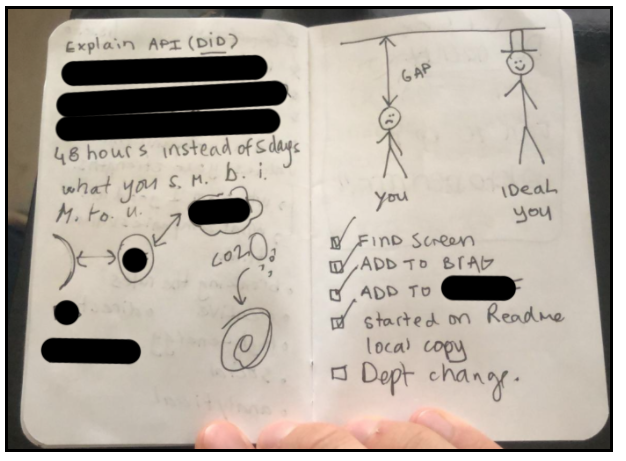 Explain API (DiD)
48 hours instead of 5 days
what you s. M. b. i.
M. to. u.
GAP
you
iDeal
you
FIND Screen
ADD TO
ADD TO
started on Readme
local copy
Dept change.